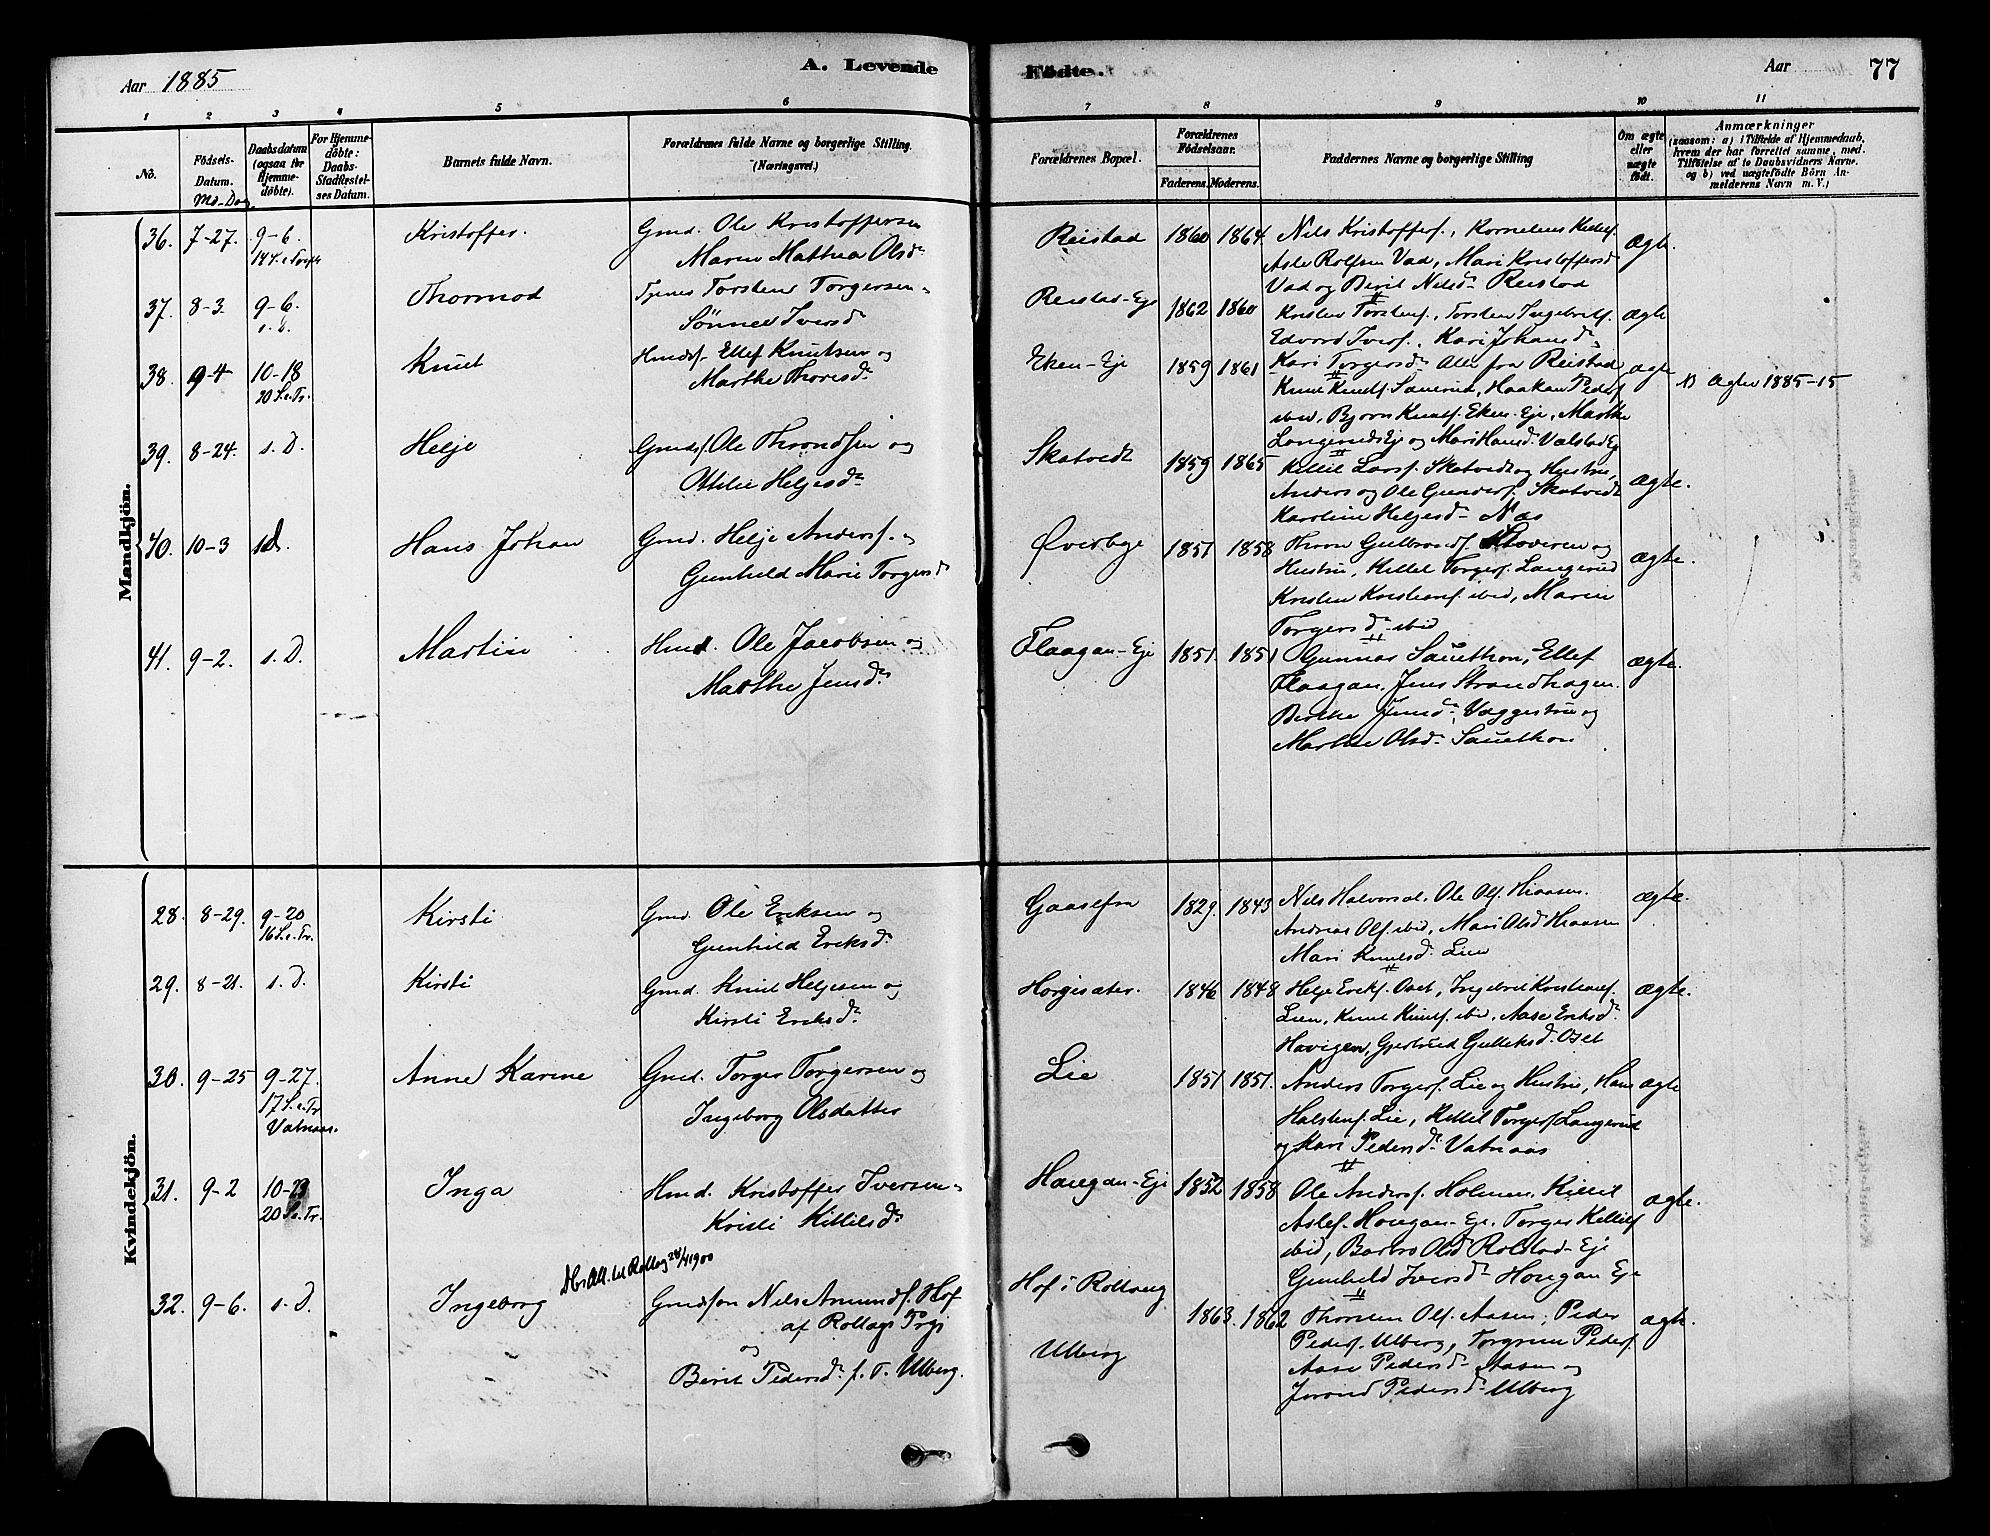 Aar 1885
A. Levende
Födte.
Aar
77
1 2 3 4 5 6 7 8 9 10 11
No.
Födsels-Datum.
Md-Dag
Daabsdatum (ogsaa for Hjemmedöbte).
For Hjemmedöbte: Daabs-Stadfæstelses Datum.
Barnets fulde Navn.
Forældrenes fulde Navne og borgerlige Stilling.
(Næringsvei.)
Forældrenes Bopæl.
Forældrenes Födselsaar.
Faderens. Moderens.
Faddernes Navne og borgerlige Stilling
Om ægte eller uægte födt.
Anmærkninger
(saasom: a) i Tilfælde af Hjemmedaab, hvem der har forrettet samme, med Tilföielse af to Daabsvidners Navne, og b) ved uægtefödte Börn Anmelderens Navn m. V.)
Mandkjön.
36. 7-27. 9-6. Kristoffer. Gmd. Ole Kristoffersen
Maren Mathea Olsdr
Reistad 1860 1864 Nils Kristoffers.,
Asle Rolfsen Vad, Mari Kristoffersd
Vad og Berit Nilsdr Reistad
ægte.
37. 8-3. 9-6. s. D. Thormod Torsten Torgersen
Sönnev Iversd
Reistad-Eje 1862 1860 Kristen Torstens., Torsten Ingebrits.
Edvard Ivers., Kari Johansdr
Kari Torgersdr Alle fra Reistad
ægte
38. 9-4 10-18 20 S. e. Tr. Knut Ellef Knutsen og
Marthe Thoresdr
Eken-Eje 1859 1861 Knut Knuts. Haakan Peders.
ibid, Bjørn Knuts. Eken-Eje, Marthe
Langerud Eje og Mari Hansd.
ægte NB ægtev 1885-15
39. 8-24. s. D. Helje Gmds. Ole Throndsen og
Heljesdr
Skatvedt 1859 1865 Kittil Lars. Skatvedt og Hustru,
Anders og Ole Gunders. Skatvedt
Karoline Heljesdr Næs
ægte.
40. 10-3 s. D. Hans Johan Gmd. Helje Anders. og
Gunhild Marie Torgersd
Øverbye 1851 1858 Thron Gulbrands. og
Hustru, Kittel Torgers. Langerud
Kristen Kristians. ibid, Maren
Torgersdr ibid
ægte.
41. 9-2. s. D. Martin Hmd. Ole Jacobsen og
Marthe Jensdr
Flaagan-Eje 1851. 1851 Gunnar Sauethon, Ellef
Flaagan. Jens Strandhagen.
Berthe Jensdr og
Marthe Olsdr Sauethon
ægte.
Kvindekjön.
28. 8-29. 9-20 16 S. e. Tr. Kirsti Gmd. Ole Eriksen og
Gunhild Eriksdr
1829. 1843 Nils Halvorsd. Ole Ols. Hraasen.
Andreas Ols. ibid, Mari Olsd Hraasen
Mari Knutsdr Lien
ægte.
29. 8-21. s. D. Kirsti Gmd. Knut Heljesen og
Kirsti Eriksdr
Horgesæter. 1846 1848 Helje Eriks. Oset, Ingebrit Kristians.
Lien, Knut Knuts. ibid, Aase Eriksdr
Havigen, Gjertrud Gulleksd. Oset
ægte.
30. 9-25 9-27. 17 S. e. Tr Vatnaas. Anne Karine Gmd. Torger Torgersen og
Ingeborg Olsdatter
Lie 1851 1851. Anders Torgers. Lie og Hustru, Hans
Halstens. Lie, Kittil Torgers. Langerud
og Kari Pedersdr Vatnaas
ægte
31. 9-2 20 S. e. Tr. Inga Hmd. Kristoffer Iversen
Kristi Kittilsdr
Haugan-Eje 1852 1858 Ole Anders. Holmen, Kittil
Aslef. Hougan-Eje. Torger Kittils
ibid, Barbro Olsd Rolstad-Eje
Gunhild Iversdr Hougan Eje
ægte.
Dbs Att. til Rollag 24/4 1900
32. 9-6. s. D. Ingeborg Gmdsøn Nils Amunds. Hof
af Rollags Prgj
og
Berit Pedersdr f. T. Ulberg.
Hof i Rollaug
Ulberg
1863. 1862 Thorsten Ols. Aasen, Peder
Peders. Ulberg, Torgrim Peders.
Aase Pedersdr Aasen og
Jorand Pedersdr Ulberg
ægte.